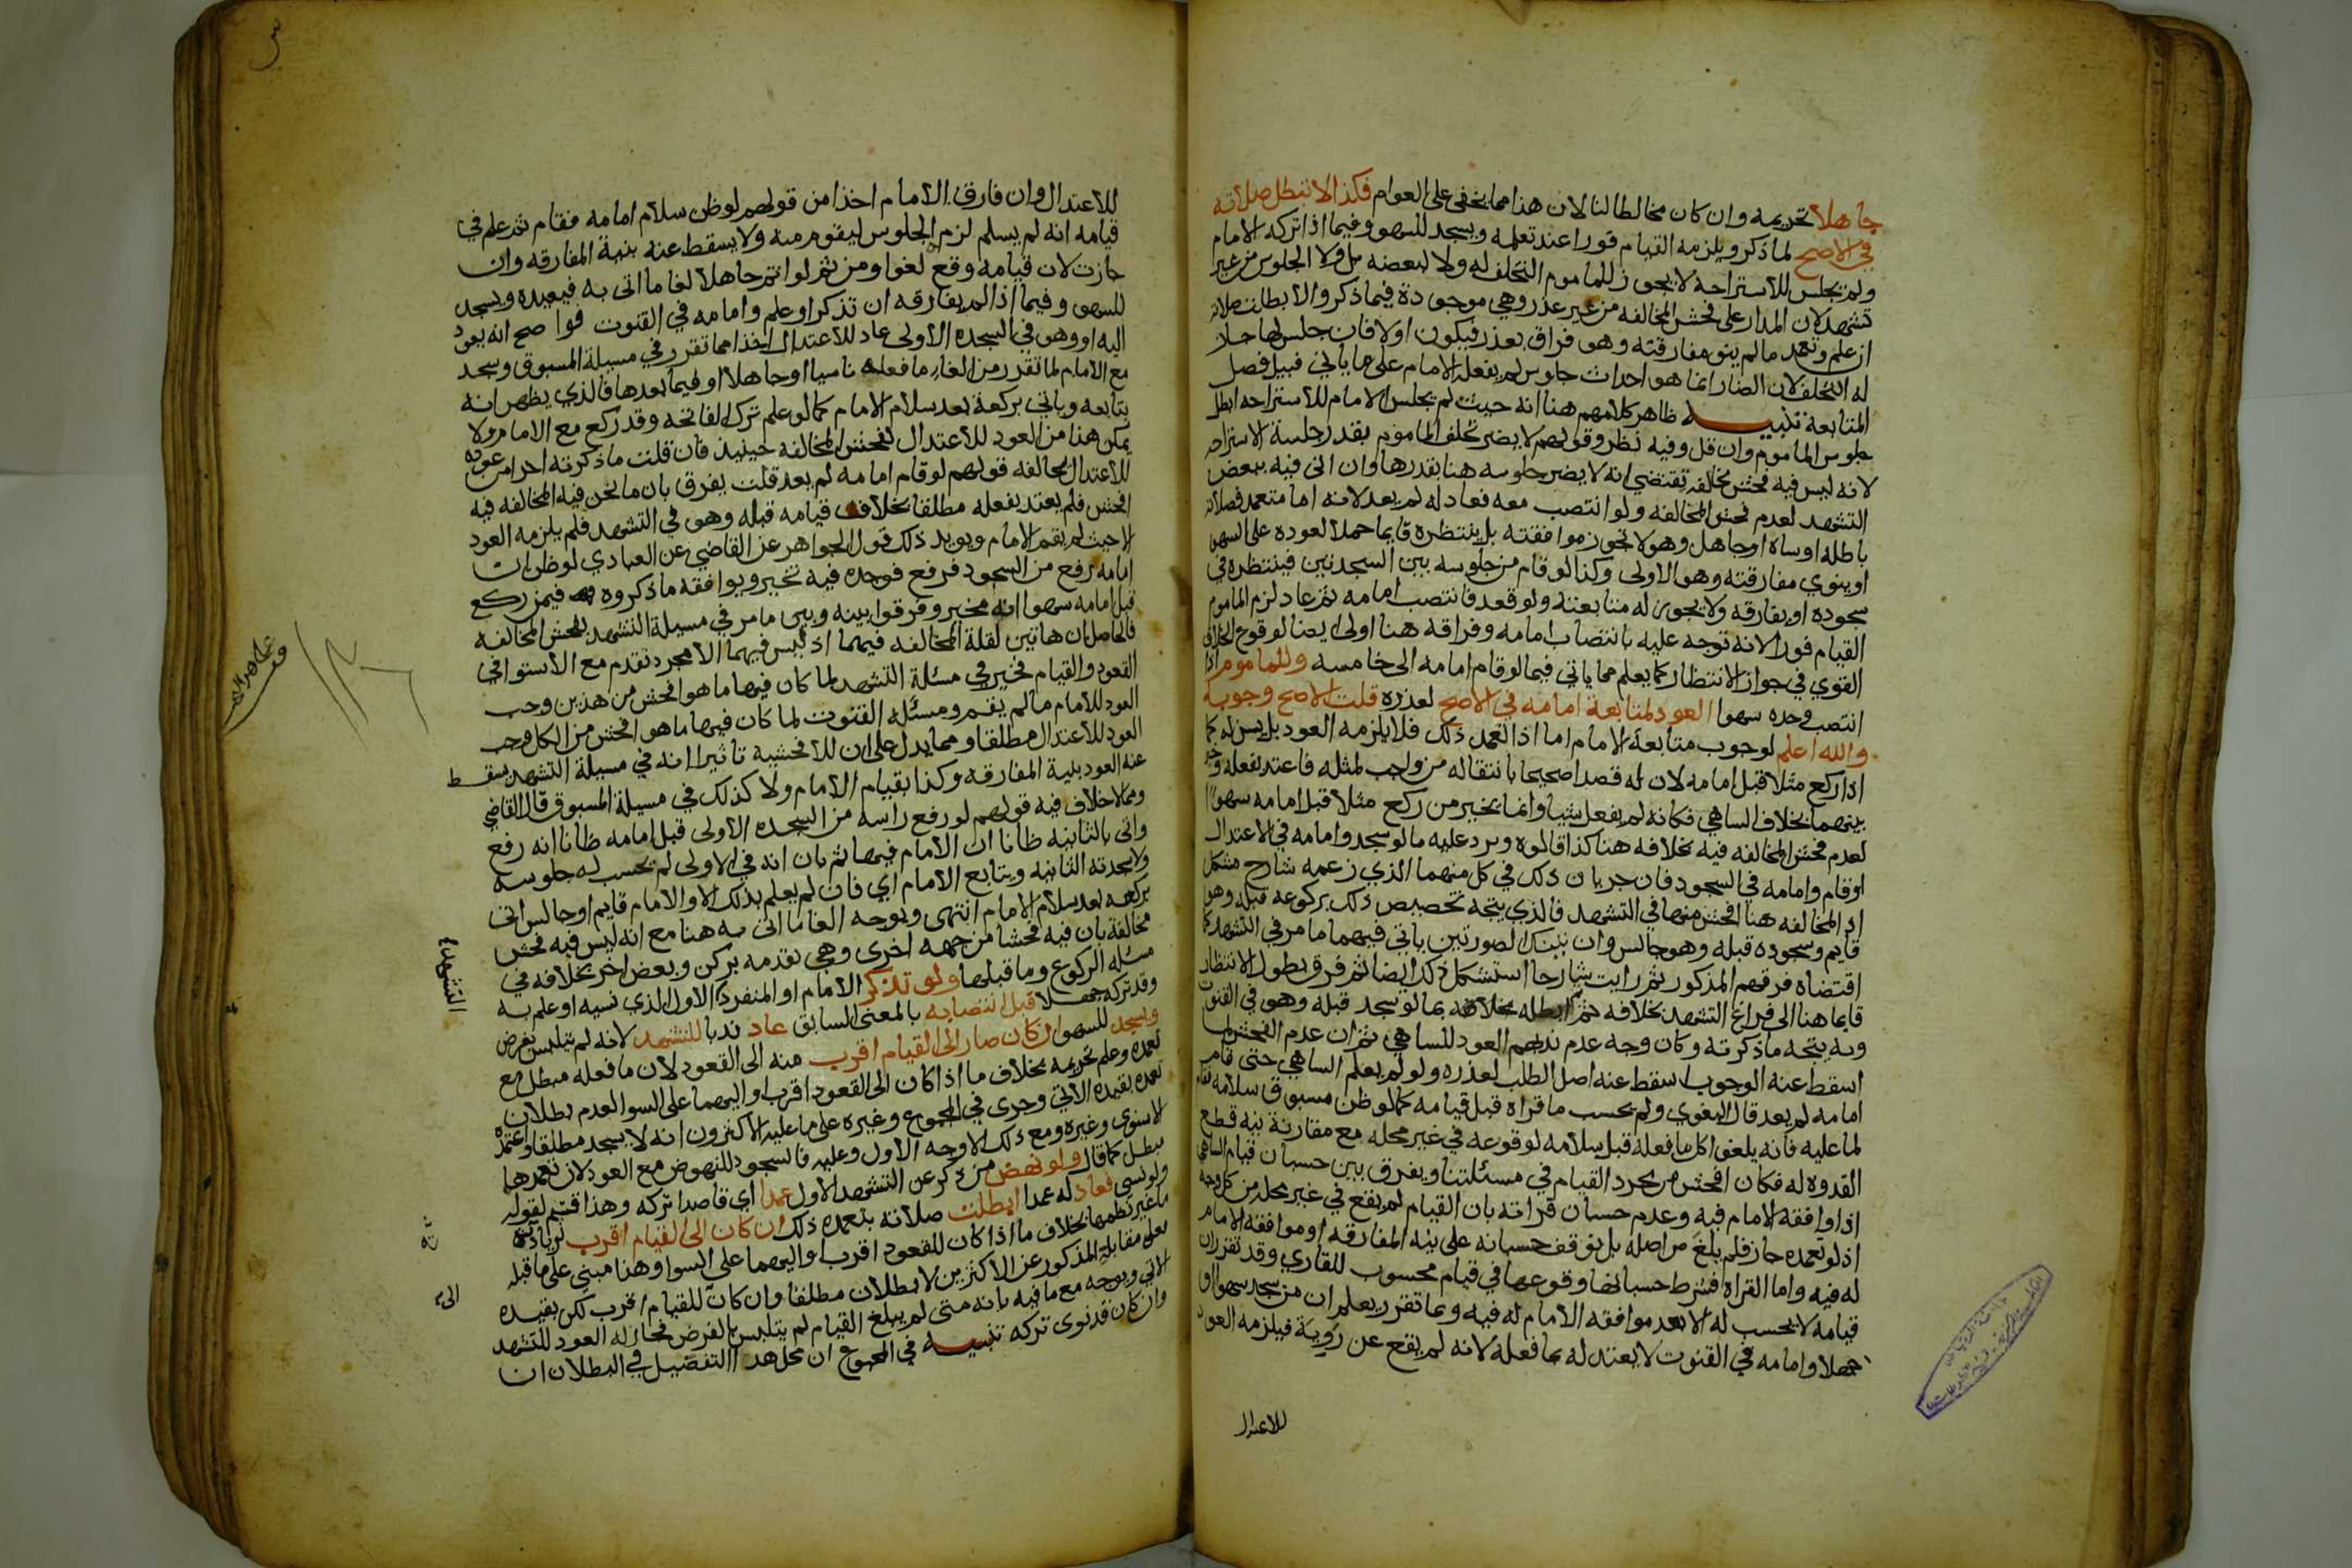 جاهلا تحريمه وان كان مخالطا لنا لان هذا مما يخفى على العوام فكذا لا تبطل صلاته
في الاصح لما ذكر ويلزمه القيام فورا عند تعلمه ويسجد للسهو وفيما اذا تركه الامام
ولم يجلس للاستراحة لا يجوز للماموم التخلف له ولا لبعضه بل ولا الجلوس من غير
تشهد لان المدار على فحش المخالفه من غير عذر وهي موجودة فيما ذكر والا بطلت صلاته
ان علم وتعمد ما لم ينو مفارقته وهو فراق بعذر فيكون اولا فان جلس لها جاز
له التخلف لان الضار انما هو احداث جلوس لم يفعله الامام على ما ياتي قبيل فصل
المتابعة تنبيه ظاهر كلامهم هنا انه حيث لم يجلس الامام للاستراحه ابطل
جلوس الماموم وان قل وفيه نظر وقولهم لا يضر تخلف الماموم بقدر جلسة الاستراحه
لانه ليس فيه فحش مخالفة يقتضي انه لا يضر جلوسه هنا بقدرها وان اتى فيه ببعض
التشهد لعدم فحش المخالفه ولو انتصب معه فعاد له لم يعد لانه اما متعمد فصلاته
باطله او ساه او جاهل وهو لا تجوز موافقته بل ينتظره قايما حملا لعوده على السهو
او ينوي مفارقته وهو الاولى وكذا لو قام من جلوسه بين السجدتين فينتظره في
سجوده او يفارقه ولا يجوز له متابعته ولو قعد فانتصب امامه ثم عاد لزم الماموم
القيام فورا لانه توجه عليه بانتصاب امامه وفراقه هنا اولى ايضا لوقوع الخلاف
القوي في جواز الانتظار كما يعلم مما ياتي فيما لو قام امامه الى خامسه وللماموم اذا
انتصب وحده سهوا العود لمتابعة امامه في الاصح لعذره قلت الاصح وجوبه
والله اعلم لوجوب متابعة الامام اما اذا تعمد ذلك فلا يلزمه العود بل يسن له كما
اذا ركع مثلا قبل امامه لان له قصدا صحيحا بانتقاله من واجب لمثله فاعتد بفعله وخير
بينهما بخلاف الساهي فكانه لم يفعل شيا وانما تخير من ركع مثلا قبل امامه سهوا
لعدم فحش المخالفه فيه بخلافه هنا كذا قالوه ويرد عليه ما لو سجد وامامه في الاعتدال
او قام وامامه في السجود فان جريان ذلك في كل منهما الذي زعمه شارح مشكل
اذ المخالفه هنا افحش منها في التشهد فالذي يتجه تخصيص ذلك بركوعه قبله وهو
قايم وسجوده قبله وهو جالس وان تينك الصورتين ياتي فيهما ما مر في التشهد كما
اقتضاه فرقهم المذكور ثم رايت شارحا استشكل ذلك ايضا ثم فرق بطول الانتظار
قايما هنا الى فراغ التشهد بخلافه ثم ابطله بما لو سجد قبله وهو في القنوت
وبه يتجه ما ذكرته وكان وجه عدم ندبهم العود للساهي ثم ان عدم الفحش لما
اسقط عنه الوجوب اسقط عنه اصل الطلب لعذره ولو لم يعلم الساهي حتى قام
امامه لم يعد قال البغوي ولم يحسب ما قراه قبل قيامه كما لو ظن مسبوق سلامه فقام
لما عليه فانه يلغو كل ما فعله قبل سلامه لوقوعه في غير محله مع مقارنة نيه قطع
القدوه له فكان افحش من مجرد القيام في مسئلتنا ويفرق بين حسبان قيام الساهي
اذا وافقه الامام فيه وعدم حسبان قراته بان القيام لم يقع في غير محله من كل وجه
اذ لو تعمده جاز فلم يلغ من اصله بل توقف حسبانه على نيه المفارقه او موافقة الامام
له فيه واما القراة فشرط حسبانها وقوعها في قيام محسوب للقاري وقد تقرر ان
قيامه لا يحسب له الا بعد موافقه الامام له فيه وبما تقرر يعلم ان من سجد سهوا او
جهلا وامامه في القنوت لا يعتد له بما فعله لانه لم يقع عن روية فيلزمه العود
للاعتدال
للاعتدال وان فارق الامام اخذا من قولهم لو ظن سلام امامه فقام ثم علم في
قيامه انه لم يسلم لزم الجلوس ليقوم منه ولا يسقط عنه بنية المفارقه وان
جازت لان قيامه وقع لغوا ومن ثم لو اتم جاهلا لغا ما اتى به فيعيده ويسجد
للسهو وفيما اذا لم يفارقه ان تذكر او علم وامامه في القنوت فواضح انه يعود
اليه او وهو في السجده الاولى عاد للاعتدال اخذا مما تقرر في مسيلة المسبوق وسجد
مع الامام لما تقرر من الغاء ما فعله ناسيا او جاهلا او فيما بعدها فالذي يظهر انه
يتابعه وياتي بركعة بعد سلام الامام كما لو علم ترك الفاتحه وقد ركع مع الامام ولا
يمكن هنا من العود للاعتدال لفحش المخالفه حينيذ فان قلت ما ذكرته اخرا من عوده
للاعتدال يخالفه قولهم لو قام امامه لم يعد قلت يفرق بان ما نحن فيه المخالفه فيه
افحش فلم يعتد بفعله مطلقا بخلاف قيامه قبله وهو في التشهد فلم يلزمه العود
الا حيث لم يقم الامام ويويد ذلك قول الجواهر عن القاضي عن العبادي لو ظن ان
امامه رفع من السجود فرفع فوجده فيه تخير ويوافقه ما ذكروه فيمن ركع
قبل امامه سهوا انه مخير وفرقوا بينه وبين ما مر في مسيلة التشهد بفحش المخالفه
فالحاصل ان هاتين لقلة المخالفه فيهما اذ ليس فيهما الا مجرد تقدم مع الاستوا في
القعود والقيام فخير في مسئلة التشهد لما كان فيها ما هو افحش من هذين وجب
العود للامام ما لم يقم ومسئله القنوت لما كان فيها ما هو افحش من الكل وجب
العود للاعتدال مطلقا ومما يدل على ان للافحشية تاثيرا انه في مسيلة التشهد يسقط
عنه العود بنية المفارقه وكذا بقيام الامام ولا كذلك في مسيلة المسبوق قال القاضي
ومما لا خلاف فيه قولهم لو رفع راسه من السجده الاولى قبل امامه ظانا انه رفع
واتى بالثانيه ظانا ان الامام فيها ثم بان انه في الاولى لم يحسب له جلوسه
ولا سجدته الثانيه ويتابع الامام اي فان لم يعلم بذلك الا والامام قايم او جالس اتى
بركعه بعد سلام الامام انتهى ويوجه الغا ما اتى به هنا مع انه ليس فيه فحش
مخالفة بان فيه فحشا من جهه اخرى وهي تقدمه بركن وبعض اخر بخلافه في
مسئله الركوع وما قبلها ولو تذكر الامام او المنفرد الاول الذي نسيه او علم به
وقد تركه جهلا قبل انتصابه بالمعنى السابق عاد ندبا للتشهد لانه لم يتلبس بفرض
ويسجد للسهو ان كان صار الى القيام اقرب منه الى القعود لان ما فعله مبطل مع
تعمده وعلم تحريمه بخلاف ما اذا كان الى القعود اقرب او اليهما على السوا لعدم بطلان
تعمده بقيده الاتي وجرى في المجموع وغيره على ما عليه الاكثرون انه لا يسجد مطلقا واعتمده
الاسنوي وغيره ومع ذلك الاوجه الاول وعليه فالسجود للنهوض مع العود لان تعمدهما
مبطل كما قال ولو نهض من ذكر عن التشهد الاول عمدا اي قاصدا تركه وهذا قسيم لقوله
ولو نسي فعاد له عمدا ابطلت صلاته بتعمده ذلك ان كان الى القيام اقرب لزيادته
ما غير نظمها بخلاف ما اذا كان للقعود اقرب او اليهما على السوا وهذا مبني على ما قبله
فعلى مقابله المذكور عن الاكثرين لا بطلان مطلقا وان كان للقيام اقرب لكن بقيده
الاتي ويوجه مع ما فيه بانه متى لم يبلغ القيام لم يتلبس بالفرض فجاز له العود للتشهد
وان كان قد نوى تركه تنبيه في المجموع ان محل هذا التفصيل في البطلان ان
التشهد
الى
١٣٦